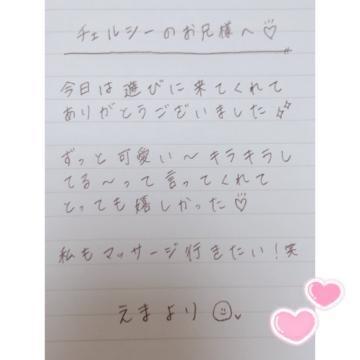 チェルシーのお兄様へ♡
今日は遊びに来てくれて
ありがとうございました✨
ずっと可愛い〜キラキラし
てる〜って言ってくれて
とっても嬉しかった♡
私もマッサージ行きたい！笑
えまより☺